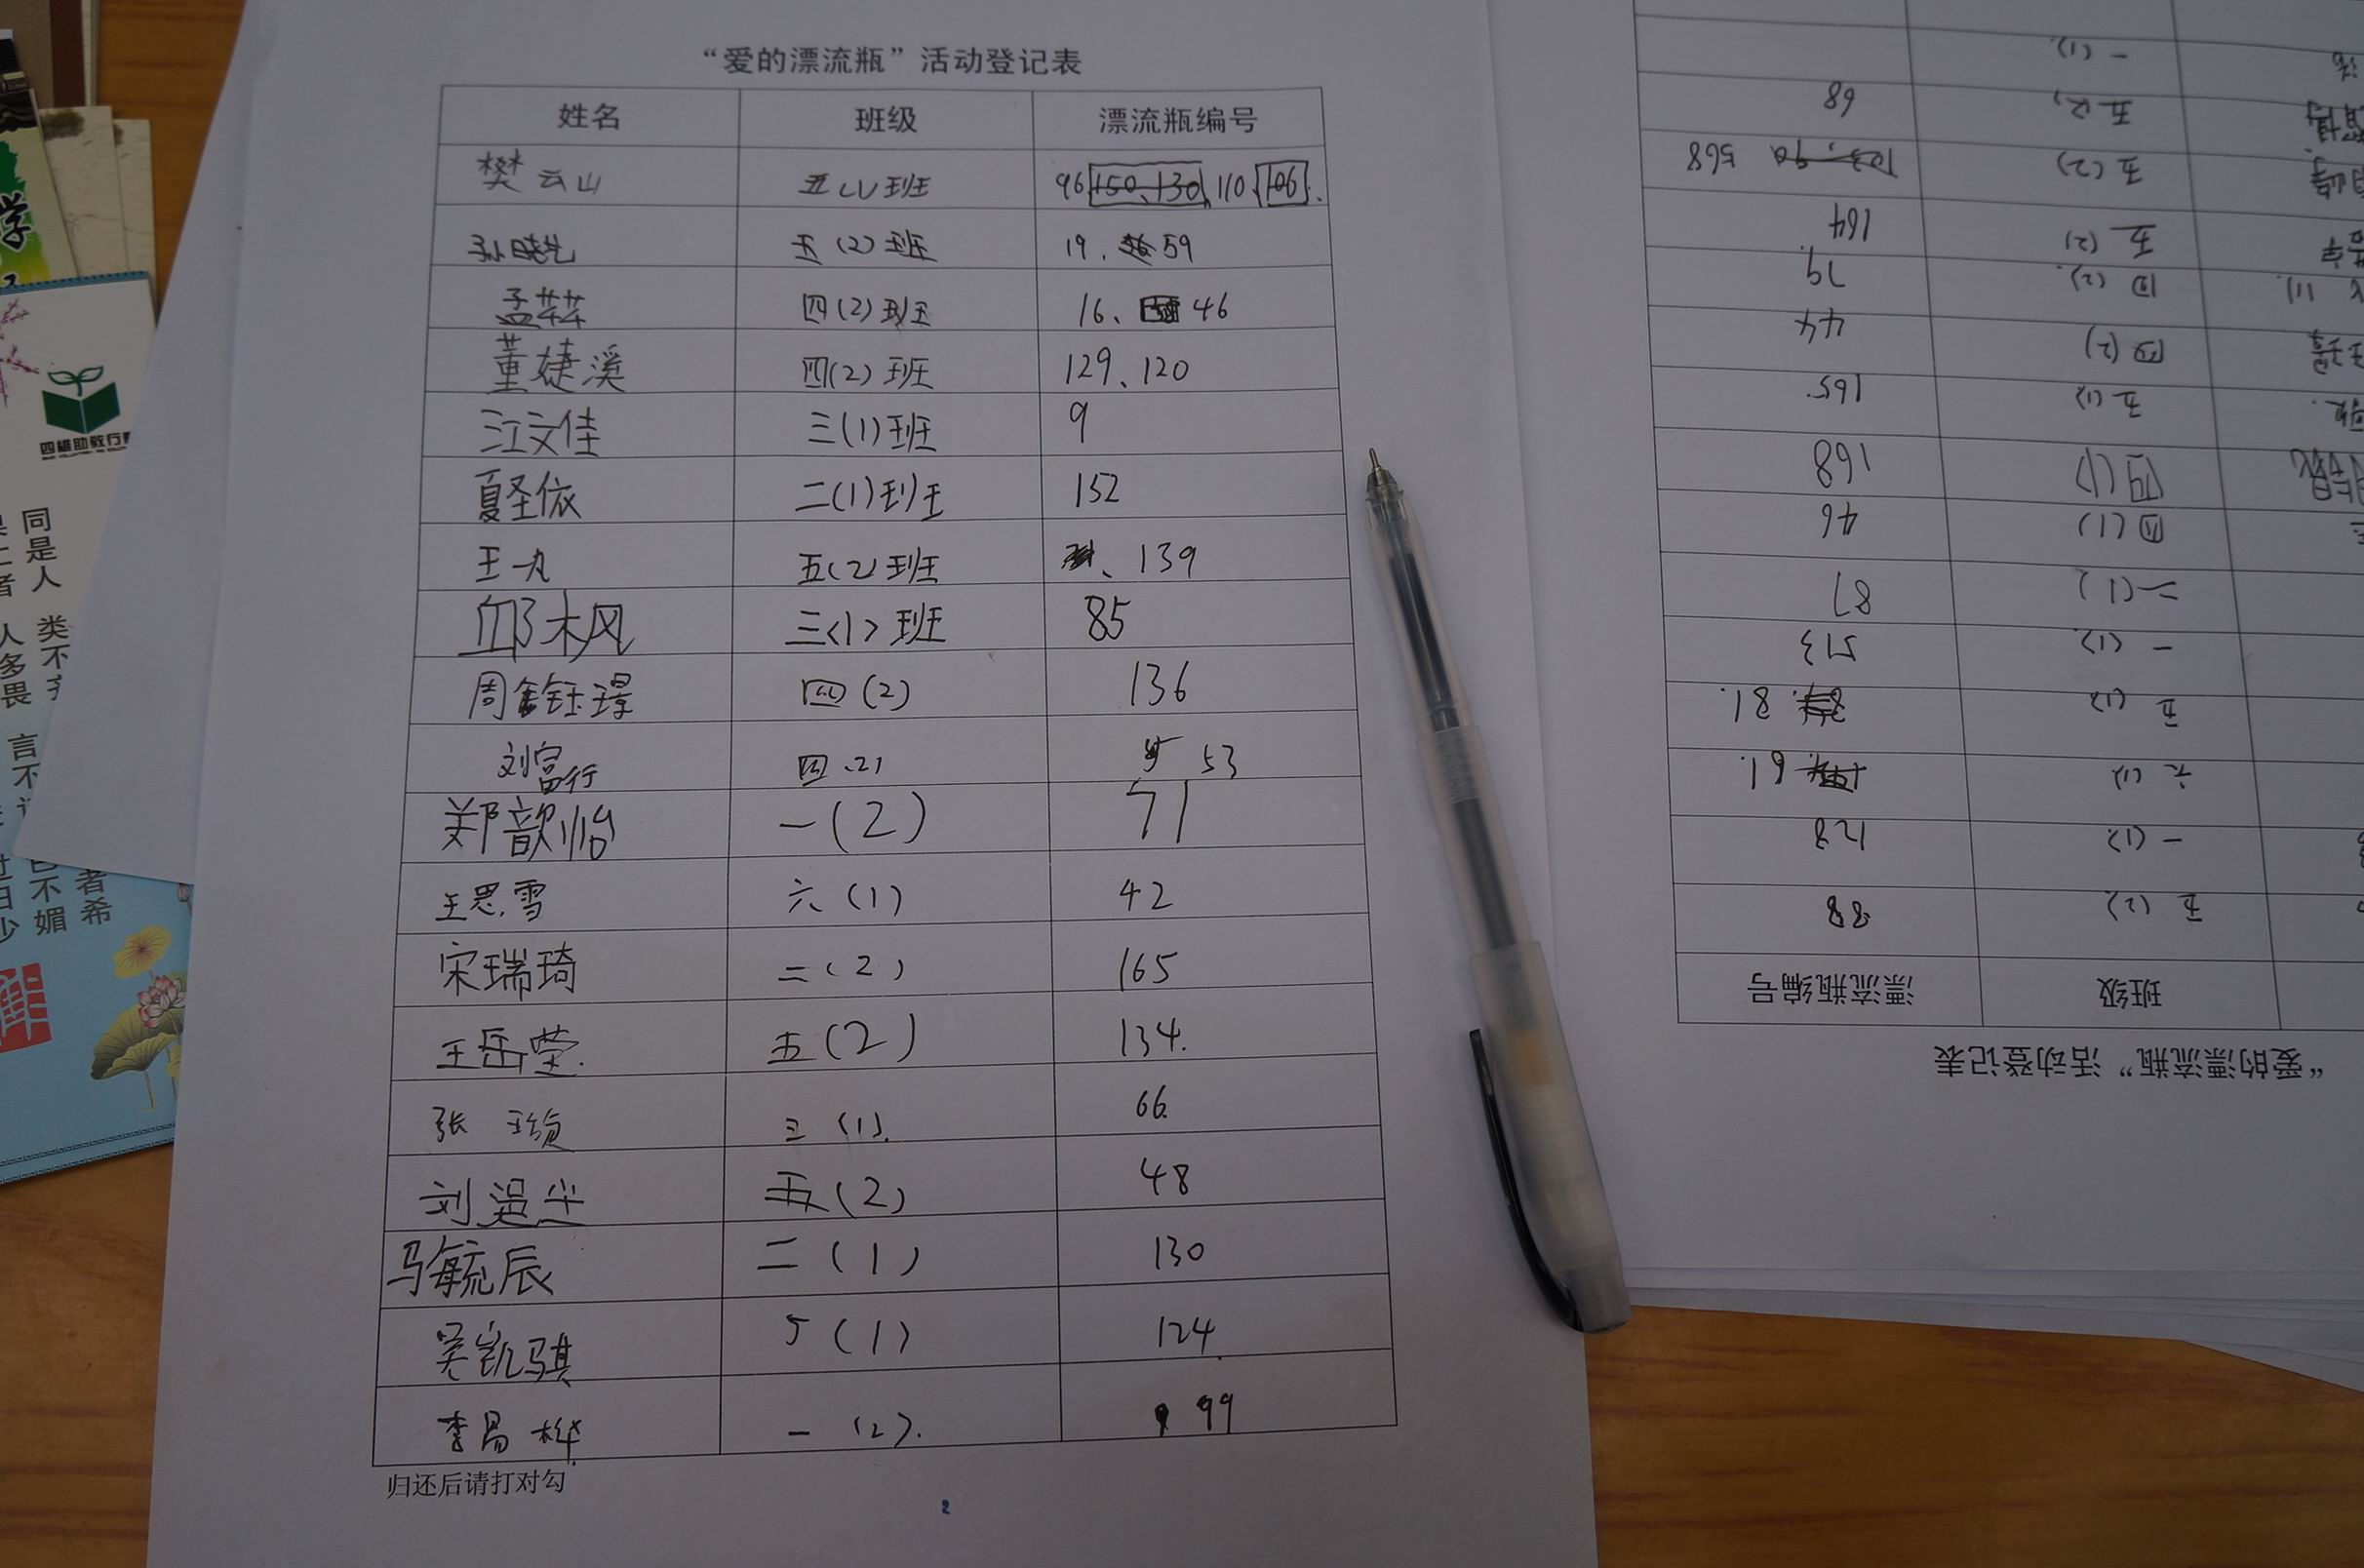 “爱的漂流瓶”活动登记表
姓名 班级 漂流瓶编号
樊云山 五(1)班 96 150、130 110、106.
孙晓光 五(2)班 19. 59
孟芊芊 四(2)班 16、46
董婕溪 四(2)班 129、120
江文佳 三(1)班 9
夏圣依 二(1)班 152
王一丸 五(2)班 、139
邮木风 三(1)班 85
周钰璟 四(2) 136
刘富行 四(2) 53
郑歆怡 一(2) 71
王思雪 六(1) 42
宋瑞琦 二(2) 165
王岳莹. 五(2) 134.
张 三(1). 66.
刘 五(2) 48
马毓辰 二(1) 130
吴凯骐 5(1) 124.
李易桦 一(2). 99
归还后请打对勾
2
“爱的漂流瓶”活动登记表
班级 漂流瓶编号
五(2) 88
一(1) 128
六(1) 61.
五(1) 81.
一(1). 513
二(1) 87
四(1) 46
四(1) 168
五(1) 165.
四(2) 44
四(2). 79
五(2) 164
五(2) 103、90 568
五(2) 68
一(1).
四维助教行
同是人 类不齐
言不
者希
不媚
人多畏
学